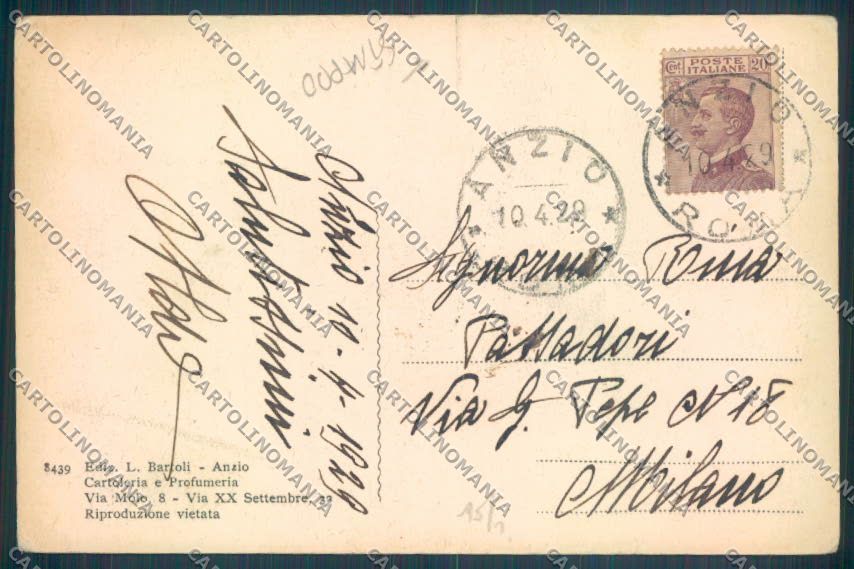 Cent POSTE 20
ITALIANE
ANZIO
10.4.29
ROMA
ANZIO
10.4.29
Anzio 10-4-1929
Signorina
Passadori
Via G. Pepe N 18
Milano
8439 Ediz. L. Bartoli - Anzio
Cartoleria e Profumeria
Via Molo, 8 - Via XX Settembre, 33
Riproduzione vietata
15/1
CARTOLINOMANIA